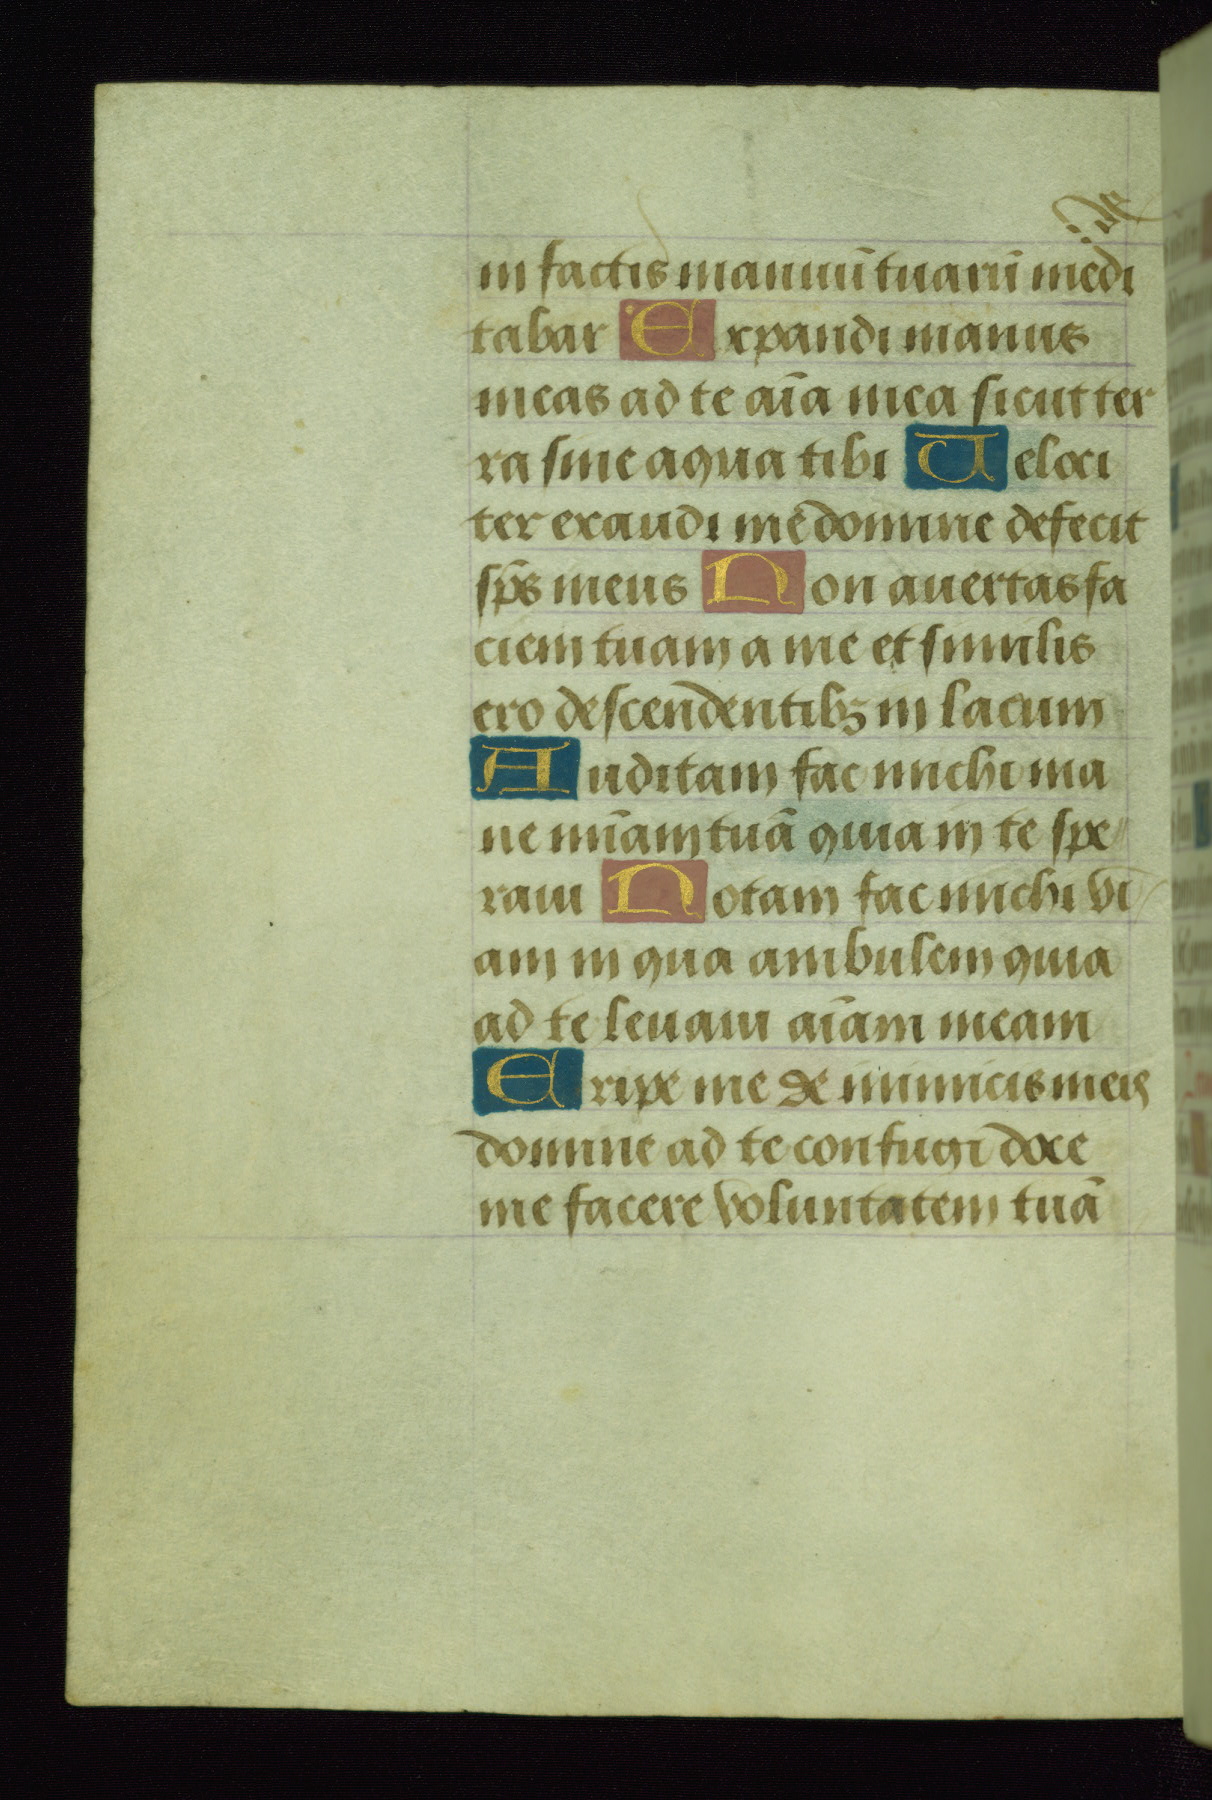 in factis manuũ tuarũ medi
tabar Expandi manus
meas ad te aĩa mea sicut ter
ra sine aqua tibi Veloci
ter exaudi me domine defecit
sp̃s meus Non auertas fa
ciem tuam a me et similis
ero descendentibꝫ in lacum
Auditam fac michi ma
ne mĩam tuã quia in te spe
raui Notam fac michi vi
am in qua ambulem quia
ad te leuaui aĩam meam
Eripe me de inimicis meis
domine ad te confugi doce
me facere voluntatem tuã